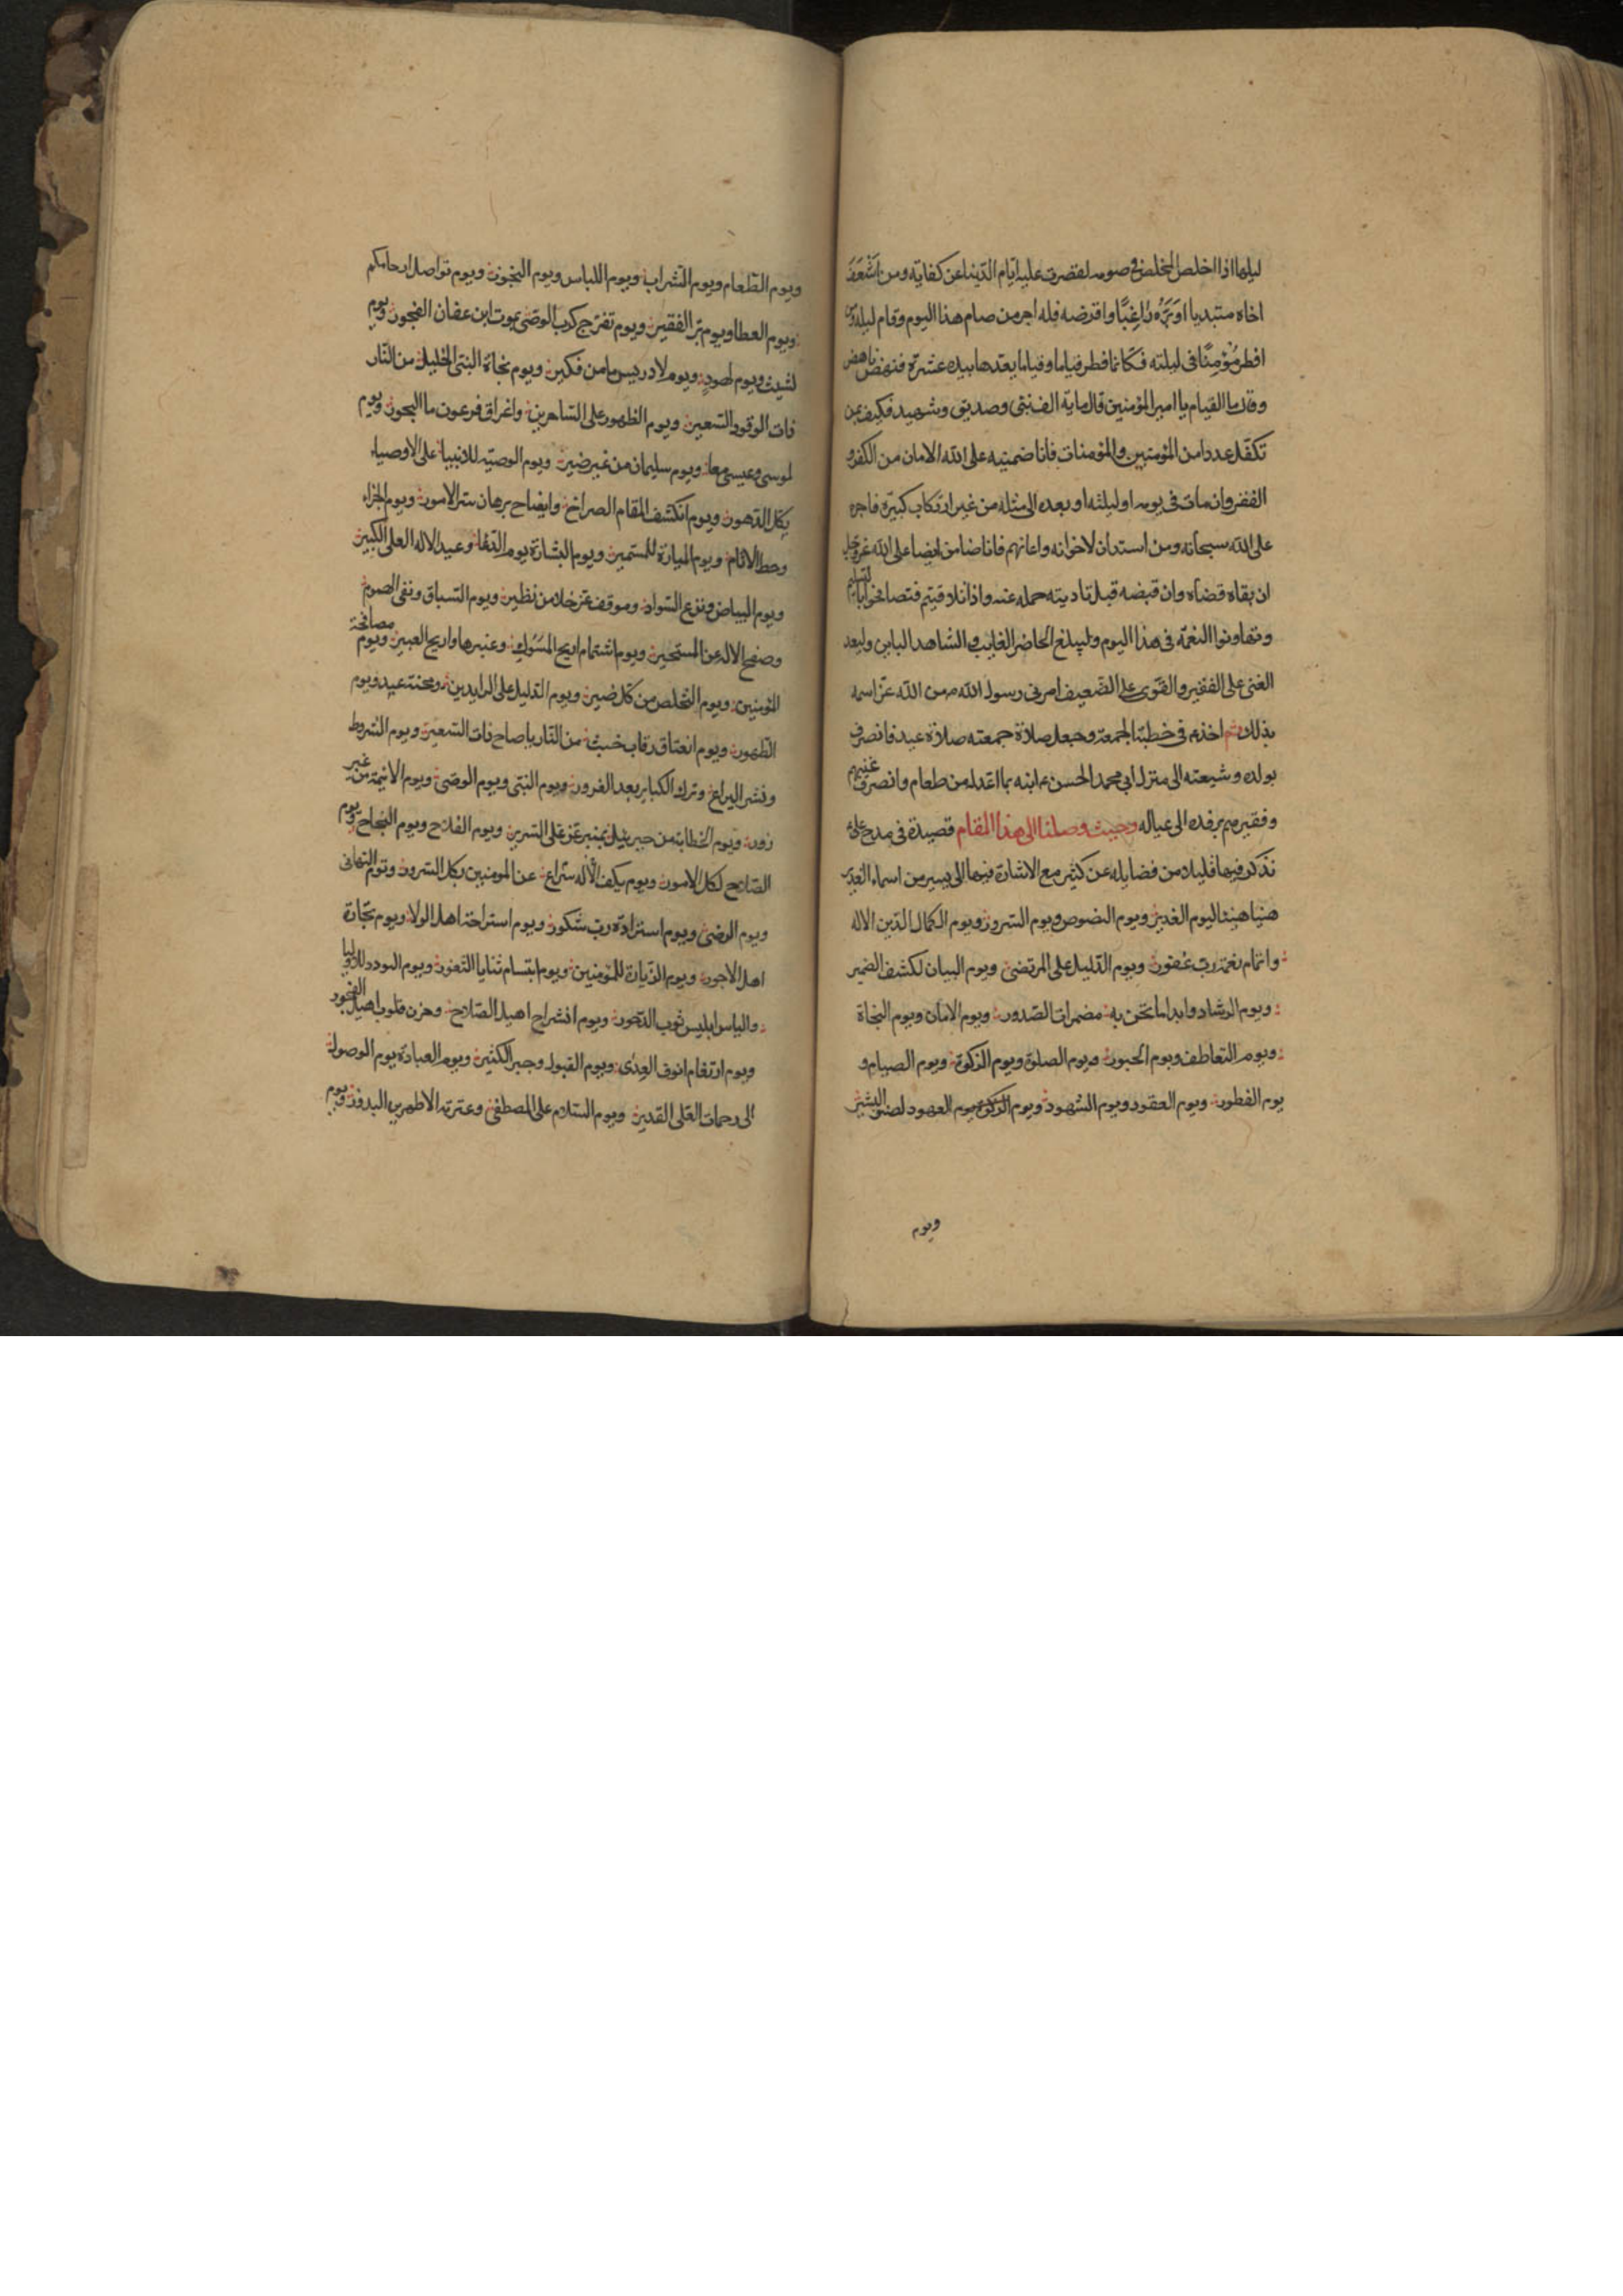 ليلها اذا اخلص المخلص فى صومه لقصرت عليه ايام الدنيا عن كفايته ومن اسعف
اخاه مبتديا او بَرَّه راغبًا واقرضه فله اجر من صام هذا اليوم وقام ليله ومن
افطر مُؤمِنًا فى ليلته فكانما فطر فياما وفياما يعدها بيده عشرة فنهض ناهض
وقال ما الفيام يا امير المؤمنين قال ماية الف نبى وصديق وشهيد فكيف بمن
تكفل عددا من المؤمنين والمؤمنات فانا ضمينه على الله الامان من الكفر و
الفقر وان مات فى يومه او ليلته او بعده الى مثله من غير ارتكاب كبيرة فاجره
على الله سبحانه ومن استدان لاخوانه واعانهم فانا ضامن ايضا على الله عز وجل
ان بقاه قضاه وان قبضه قبل تاديته حمله عنه واذا تلاقيتم فتصافحوا بالتسليم
وتهاونوا النعمة فى هذا اليوم وليبلغ الحاضر الغايب والشاهد الباين وليعد
الغنى على الفقير والقوى على الضعيف امرنى رسول الله من الله عز اسمه
بذلك ثم اخذ فى خطبة الجمعة وجعل صلاة جمعته صلاة عيد فانصرف
بولده وشيعته الى منزل ابى محمد الحسن ابنه بما اعد له من طعام وانصرف غنيهم
وفقيرهم برفده الى عياله وحيث وصلنا الى هذا المقام قصيدة فى مدح على
نذكر فيها قليلا من فضايله عن كثير مع الاشارة فيها الى يسير من اسماء الغدير
هنيا هنيئا ليوم الغدير ويوم النصوص ويوم السرور ويوم الكمال لدين الاله
واتمام نعمة رب غفور ويوم الدليل على المرتضى ويوم البيان لكشف الضمير
ويوم الرشاد وابدا ما تجن به مضمرات الصدور ويوم الامان ويوم النجاة
ويوم التعاطف ويوم الحبور ويوم الصلوة ويوم الزكوة ويوم الصيام و
يوم الفطور ويوم العقود ويوم الشهود ويوم العهود لصنو البشير
ويوم
ويوم الطعام ويوم الشراب ويوم اللباس ويوم النحور ويوم تواصل ارحامكم
ويوم العطا ويوم بر الفقير ويوم تفرج كرب الوصى بموت ابن عفان الفجور ويوم
لشيث ويوم لهود ويوم لادريس ما من فكير ويوم نجاة النبى الخليل من النار
ذات الوقود السعير ويوم الظهور على الساحرين واغراق فرعون ما البحور ويوم
لموسى وعيسى معا ويوم سليمان من غير ضير ويوم الوصية للانبيا على الاوصياء
بكل الدهور ويوم انكشف المقام الصراح وايضاح برهان ستر الامور ويوم الجزاء
وحط الاثام ويوم الميارة للمستمير ويوم البشارة يوم الدعا وعيد الاله العلى الكبير
ويوم البياض ونزع السواد وموقف عز خلا من نظير ويوم السباق ونفى الهموم
وصفح الاله عن المستجير ويوم اشتمام اريج المسوك وعنبرها واريح العبير ويوم مصافحة
المؤمنين ويوم التخلص من كل ضير ويوم الدليل على الرايدين ومحنة عيد ويوم
الطهور ويوم انعتاق رقاب خبت من النار يا صاح ذات السعير ويوم الشروط
ونشر اليراع وترك الكباير بعد الغرور ويوم النبى ويوم الوصى ويوم الائمة من غير
زور ويوم الخطابة من جبرئيل بمنبر عز على السرير ويوم الفلاح ويوم النجاح ويوم
الصلاح لكل الامور ويوم يكف الاله شراع عن المومنين بكل السرور ويوم التهانى
ويوم الرضى ويوم استزادة رب شكور ويوم استراحة اهل الولا ويوم تجارة
اهل الاجور ويوم الزيارة للمؤمنين ويوم ابتسام ثنايا الثغور ويوم التودد للاوليا
والباس ابليس ثوب الدحور ويوم انشراح اهيل الصلاح وحزن قلوب اهيل الفجور
ويوم ارتغام انوف العدى ويوم القبول وجبر الكثير ويوم العبادة يوم الوصول
الى رحمات العلى القدير ويوم السلام على المصطفى وعترته الاطهرين البدور ويوم